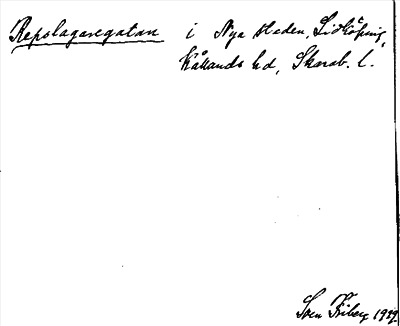 Repslagaregatan i Nya staden, Lidköping,
Kållands hd, Skarab. l.
Sven Friberg 1929